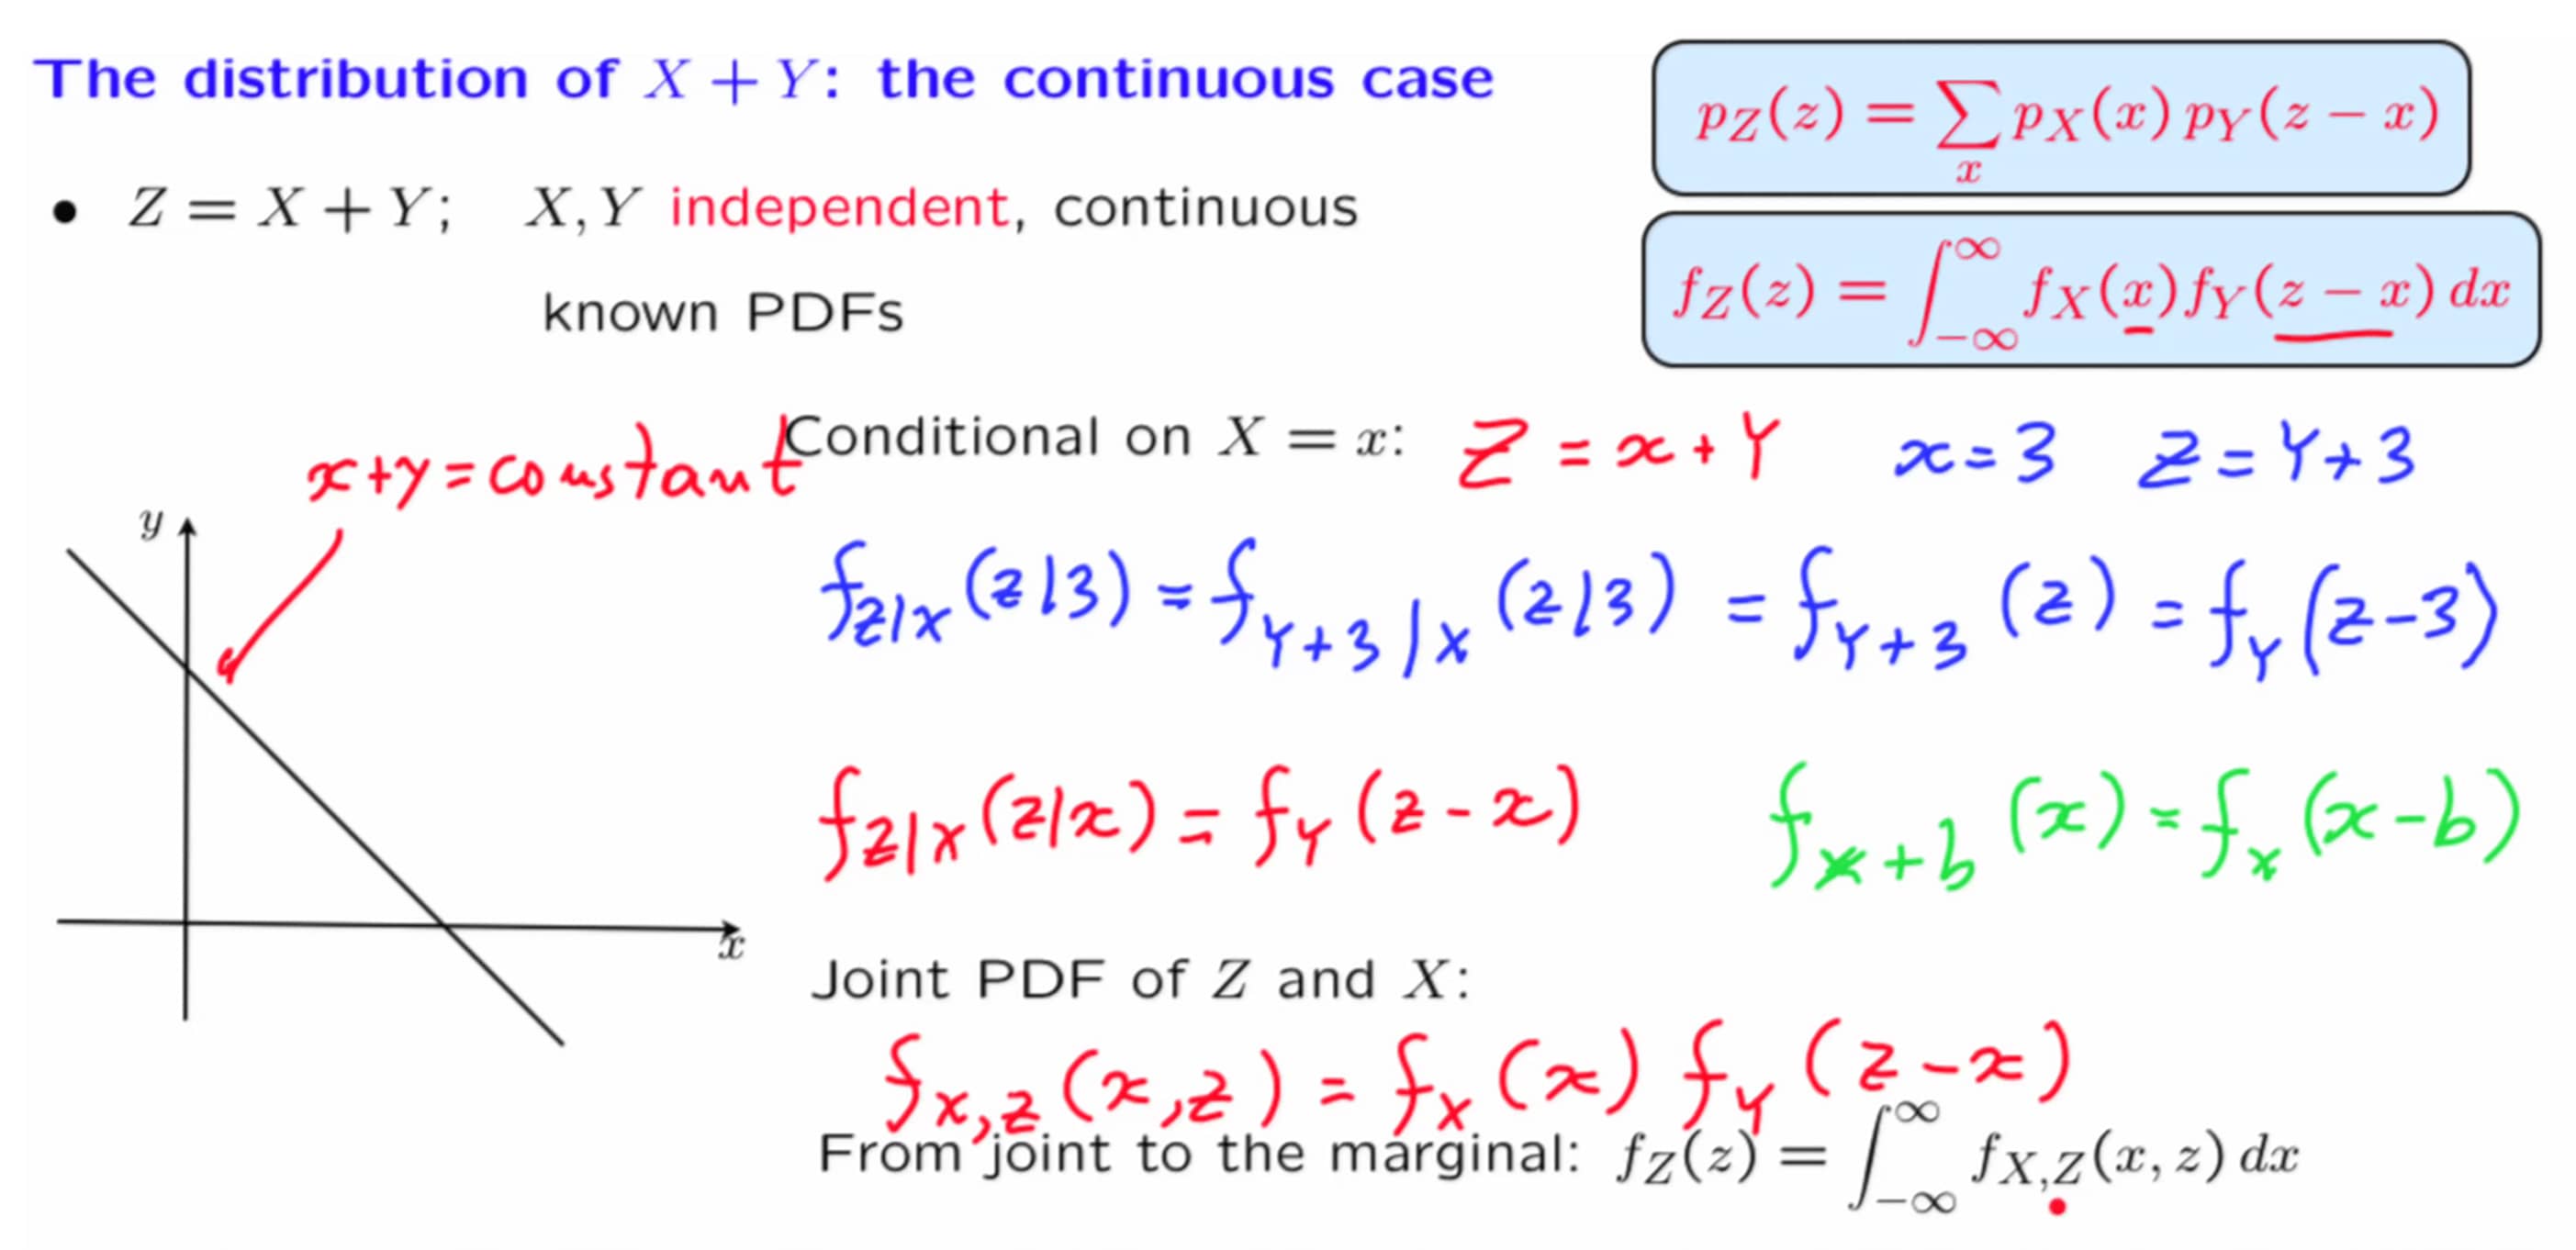 The distribution of X + Y: the continuous case
p_Z(z) = ∑_x p_X(x) p_Y(z − x)
• Z = X + Y; X, Y independent, continuous
known PDFs
f_Z(z) = ∫_{−∞}^{∞} f_X(x) f_Y(z − x) dx
x+y=constant
Conditional on X = x: Z = x + Y x=3 Z = Y+3
y
f_{Z|X}(z|3) = f_{Y+3|X}(z|3) = f_{Y+3}(z) = f_Y(z−3)
f_{Z|X}(z|x) = f_Y(z−x) f_{X+b}(x) = f_X(x−b)
x
Joint PDF of Z and X:
f_{X,Z}(x,z) = f_X(x) f_Y(z−x)
From joint to the marginal: f_Z(z) = ∫_{−∞}^{∞} f_{X,Z}(x, z) dx